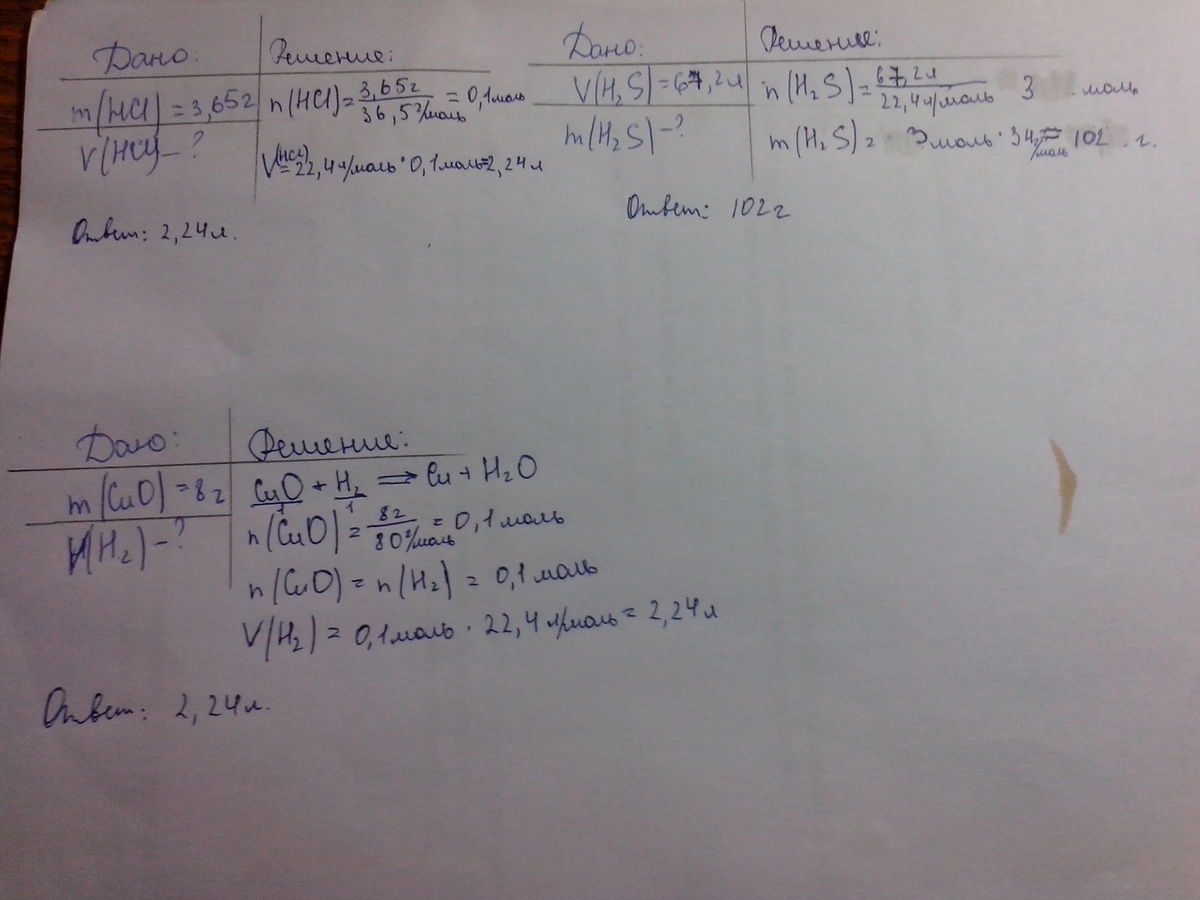 Дано:
m(HCl) = 3,65г
V(HCl) – ?
Решение:
n(HCl) = 3,65г / 36,5 г/моль = 0,1 моль
V(HCl) = 22,4 л/моль · 0,1 моль = 2,24 л
Ответ: 2,24 л.
Дано:
V(H₂S) = 67,2 л
m(H₂S) – ?
Решение:
n(H₂S) = 67,2 л / 22,4 л/моль 3 моль
m(H₂S) = 3 моль · 34 г/моль = 102 г.
Ответ: 102 г
Дано:
m(CuO) = 8 г
V(H₂) – ?
Решение:
CuO + H₂ ⇒ Cu + H₂O
1 1
n(CuO) = 8г / 80 г/моль = 0,1 моль
n(CuO) = n(H₂) = 0,1 моль
V(H₂) = 0,1 моль · 22,4 л/моль = 2,24 л
Ответ: 2,24 л.